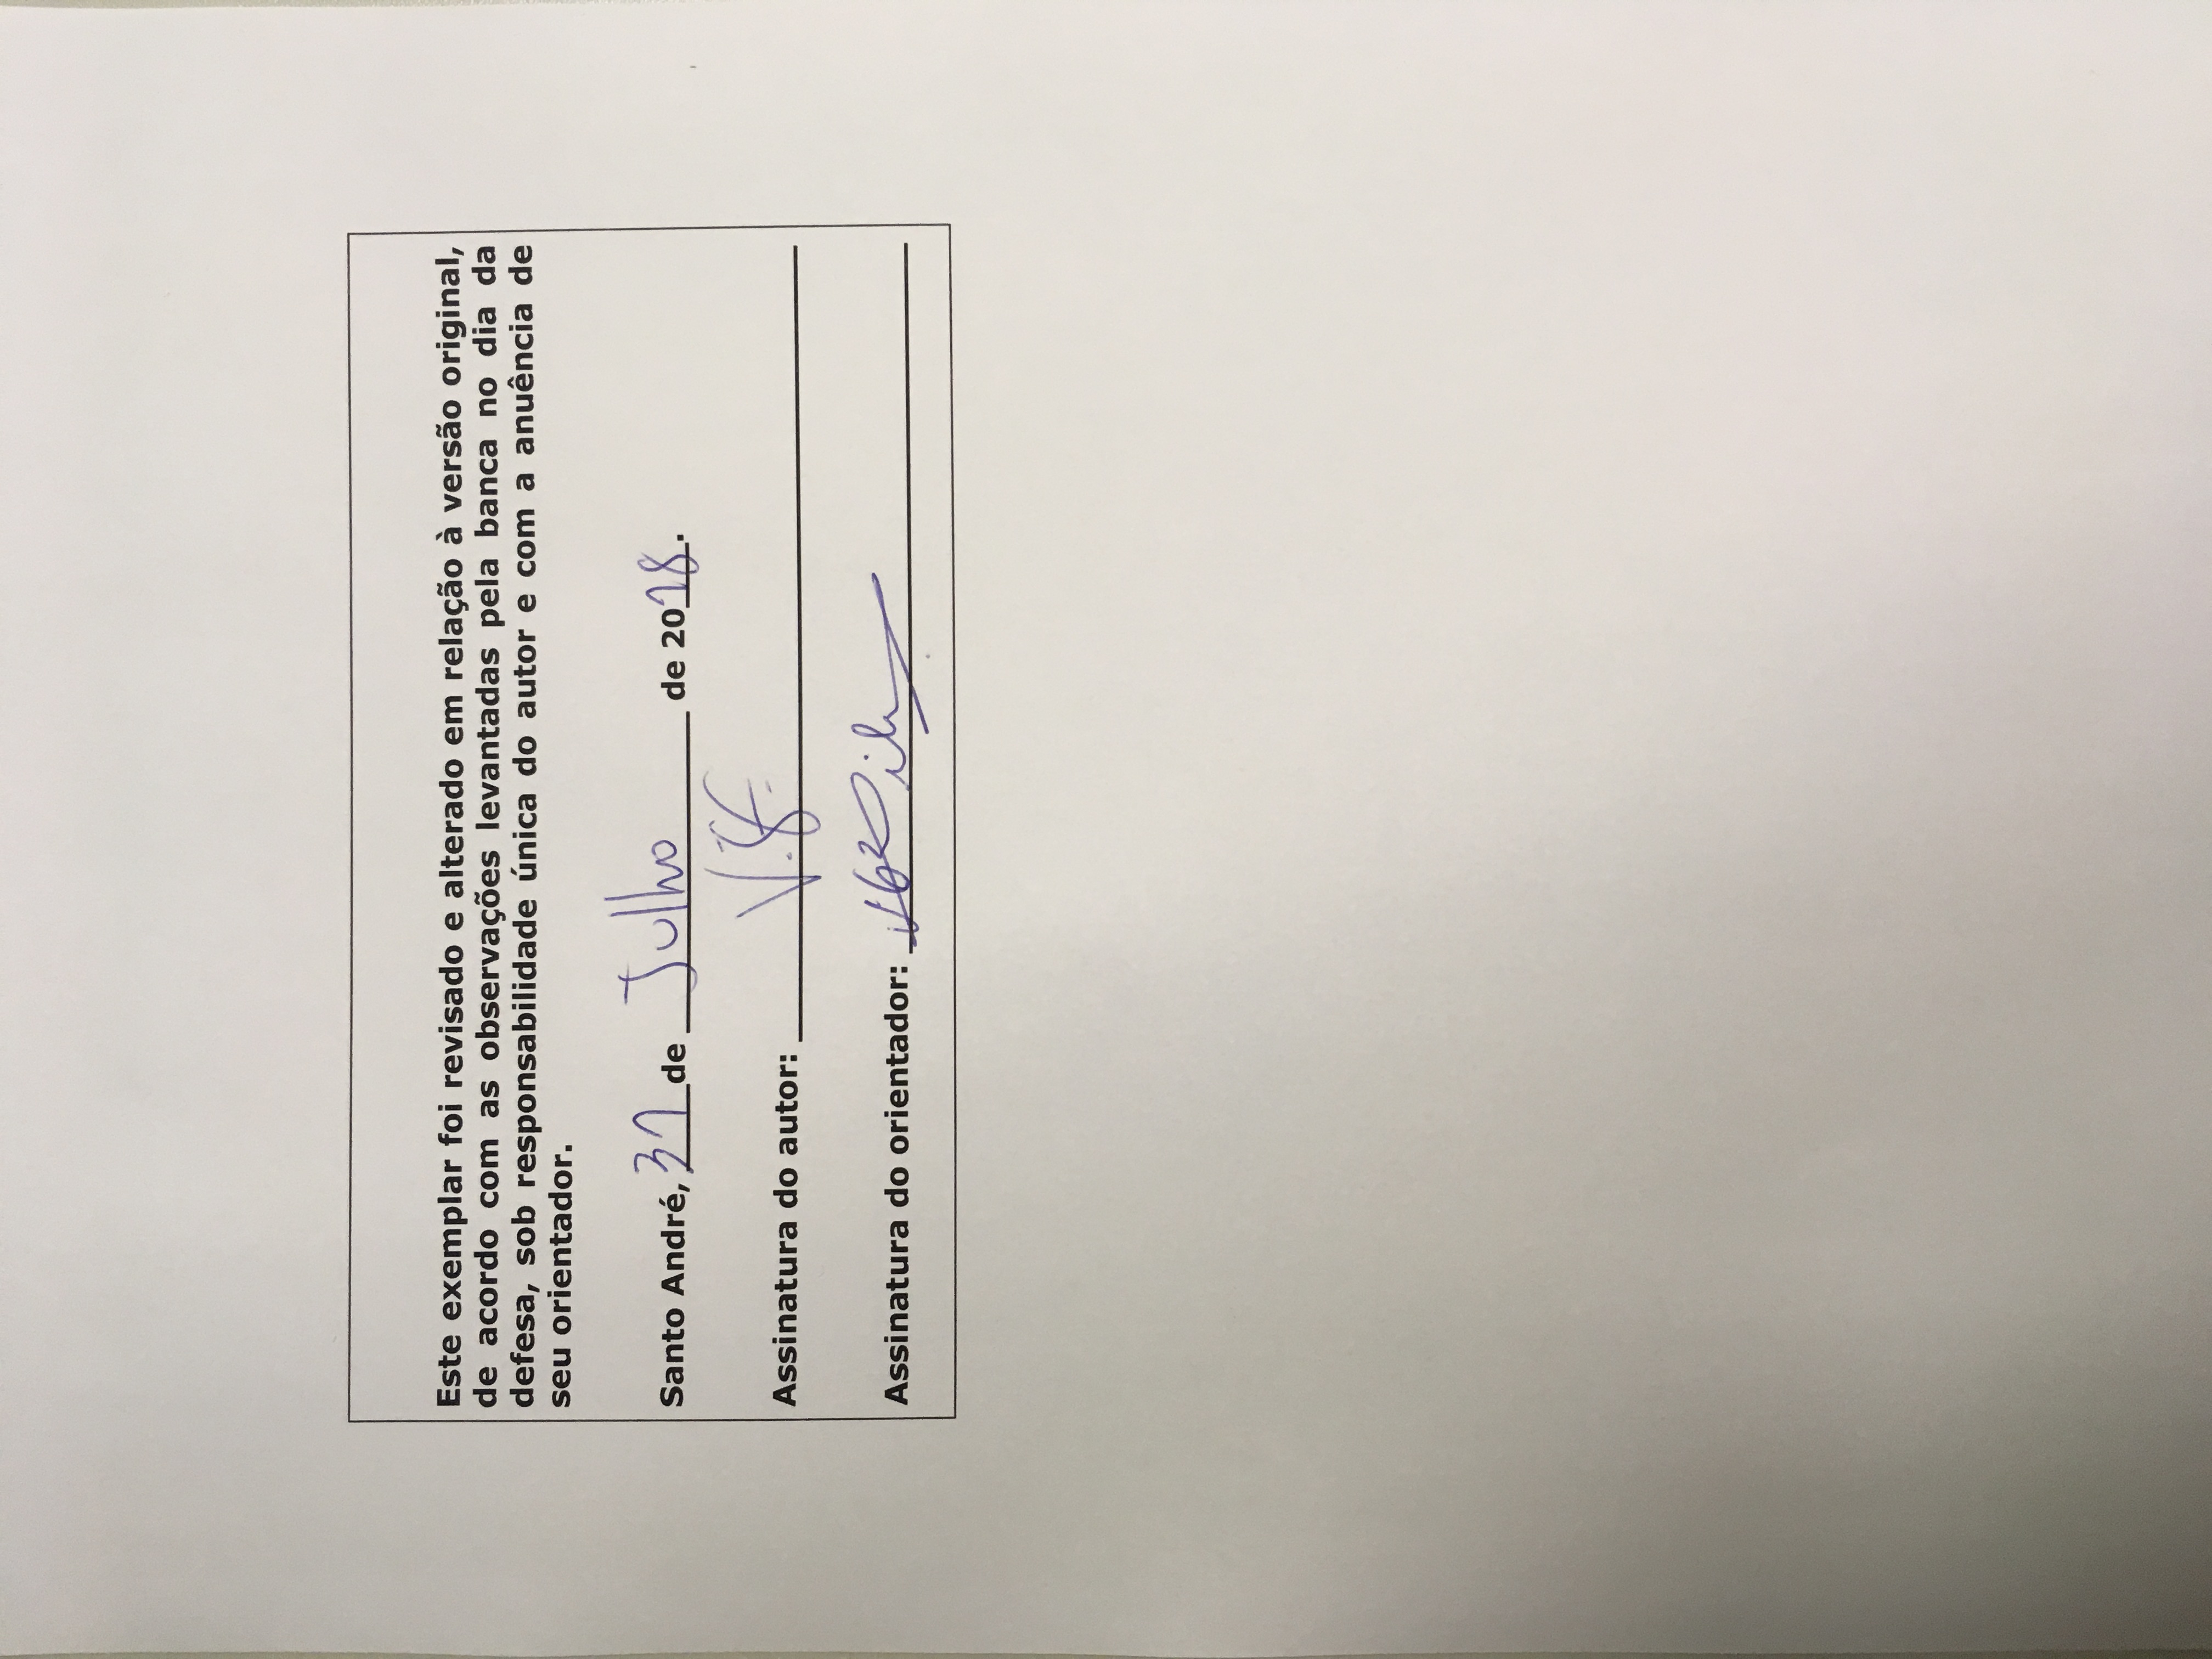 Este exemplar foi revisado e alterado em relação à versão original,
de acordo com as observações levantadas pela banca no dia da
defesa, sob responsabilidade única do autor e com a anuência de
seu orientador.
Santo André, 31 de Julho de 2018.
Assinatura do autor:
Assinatura do orientador: